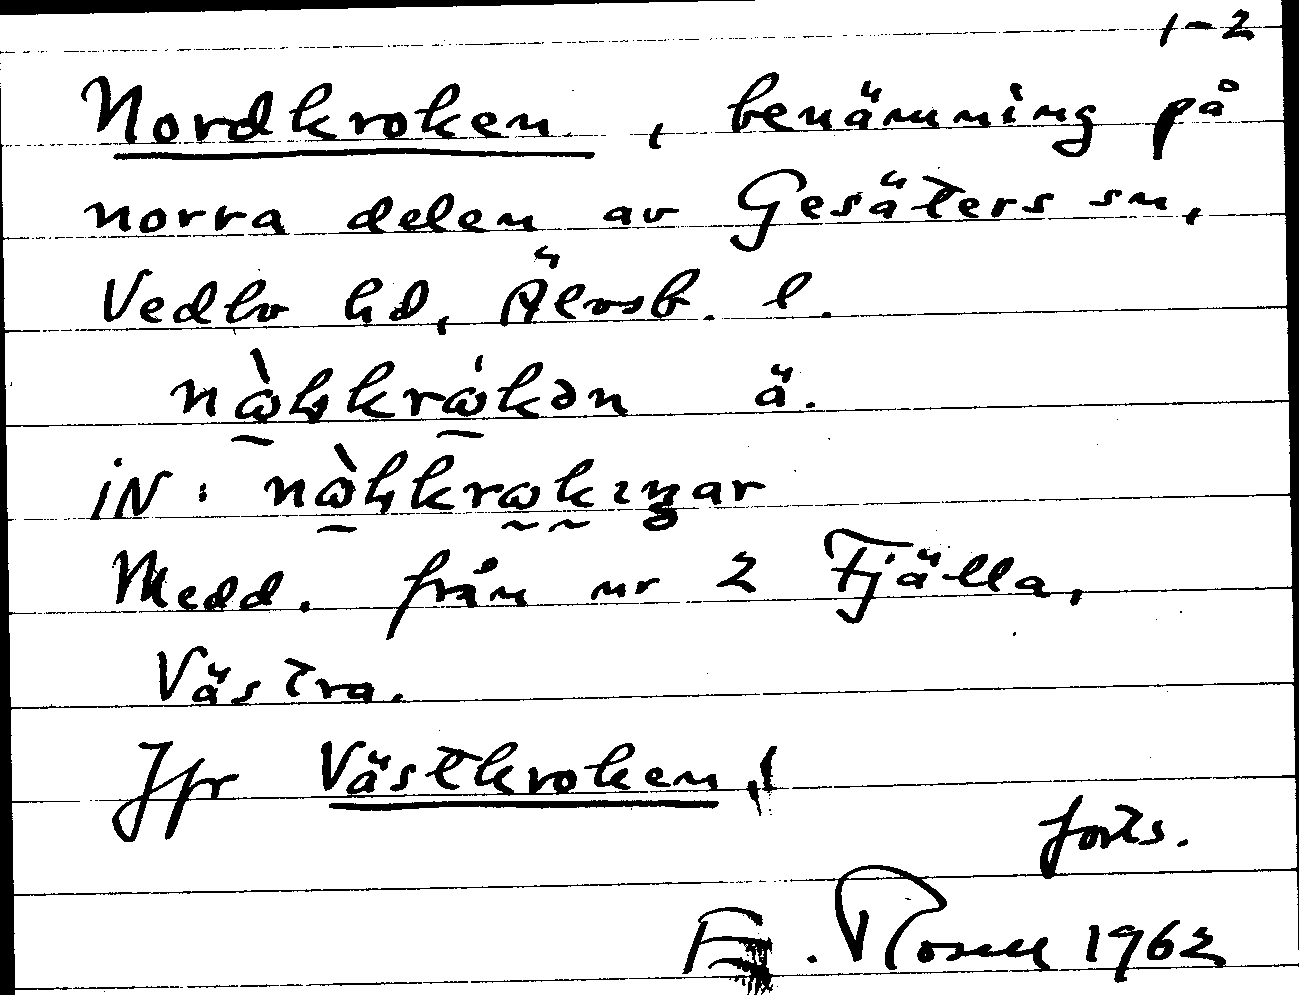 1-2
Nordkroken, benämning på
norra delen av Gesäters sn,
Vedbo hd, Älvsb. l.
ä.
iN:
Medd. från nr 2 Fjälla,
Västra.
Jfr Västkroken,
forts.
1962